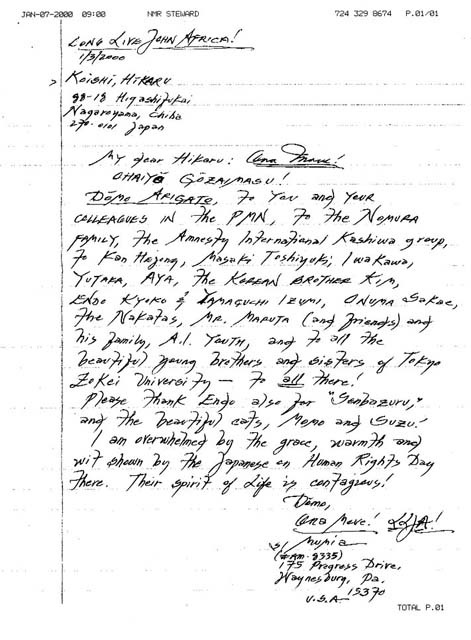 JAN-07-2000 09:00 NMR STEWARD 724 329 8674 P.01/01
LONG LIVE JOHN AFRICA!
1/3/2000
> KOISHI, HIKARU
98-18 Higashifukai
Nagareyama, Chiba
270-0101 Japan
My dear Hikaru: Ona Move!
OHAIYŌ GŌZAIMASU!
DŌMO ARIGATO, to You and your
COLLEAGUES IN the PMN, to the NOMURA
FAMILY, the Amnesty International Kashiwa group,
to Kan Hojong, Masaki Toshiyuki, Iwakawa,
YUTAKA, AYA, the KOREAN BROTHER KIM,
ENDO KYOKO & YAMAGUCHI IZUMI, ONUMA Sakae,
the Nakatas, MR. MARUTA (and friends) and
his family, A.I. YOUTH, and to all the
beautiful young brothers and sisters of Tokyo
Zokei University — to all there!
Please thank Endo also for "Senbazuru,"
and the beautiful cats, Momo and Suzu!
I am overwhelmed by the grace, warmth and
wit shown by the Japanese on Human Rights Day
there. Their spirit of Life is contagious!
Dōmo,
Ona Move! LLJA!
s/ Mumia
(#AM-8335)
175 Progress Drive,
Waynesburg, Pa.
15370
U.S.A.
TOTAL P.01